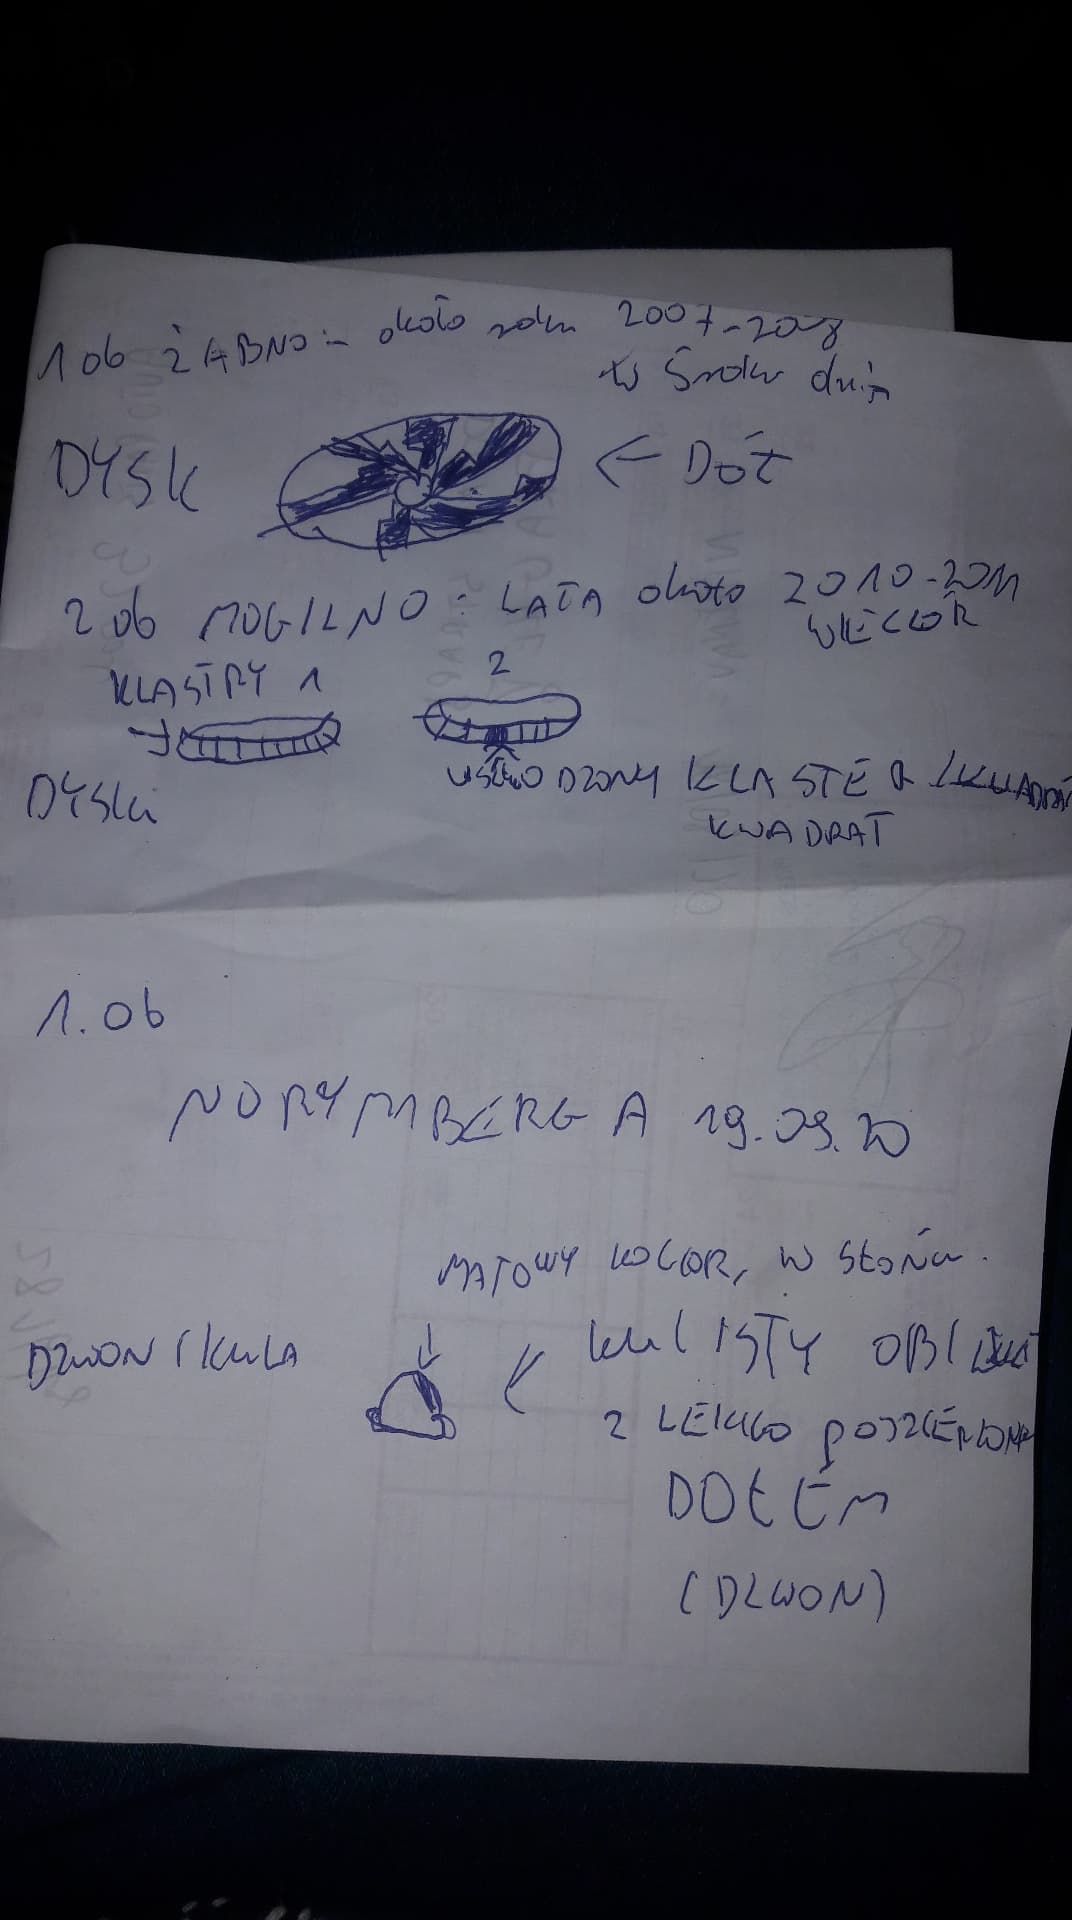 1 ob ŻABNO - około roku 2007-2008
w środku dnia
DYSK
← DÓŁ
2 ob MOGILNO: LATA około 2010-2011
WIECZÓR
KLASTRY 1
2
DYSKi
KLASTER / KWADRAT
KWADRAT
1. Ob
NORYMBERGA 19.09.20
MATOWY KOLOR, W Słońcu.
DZWON / KULA
KULISTY OBIEKT
Z LEKKO
DOŁEM
(DZWON)